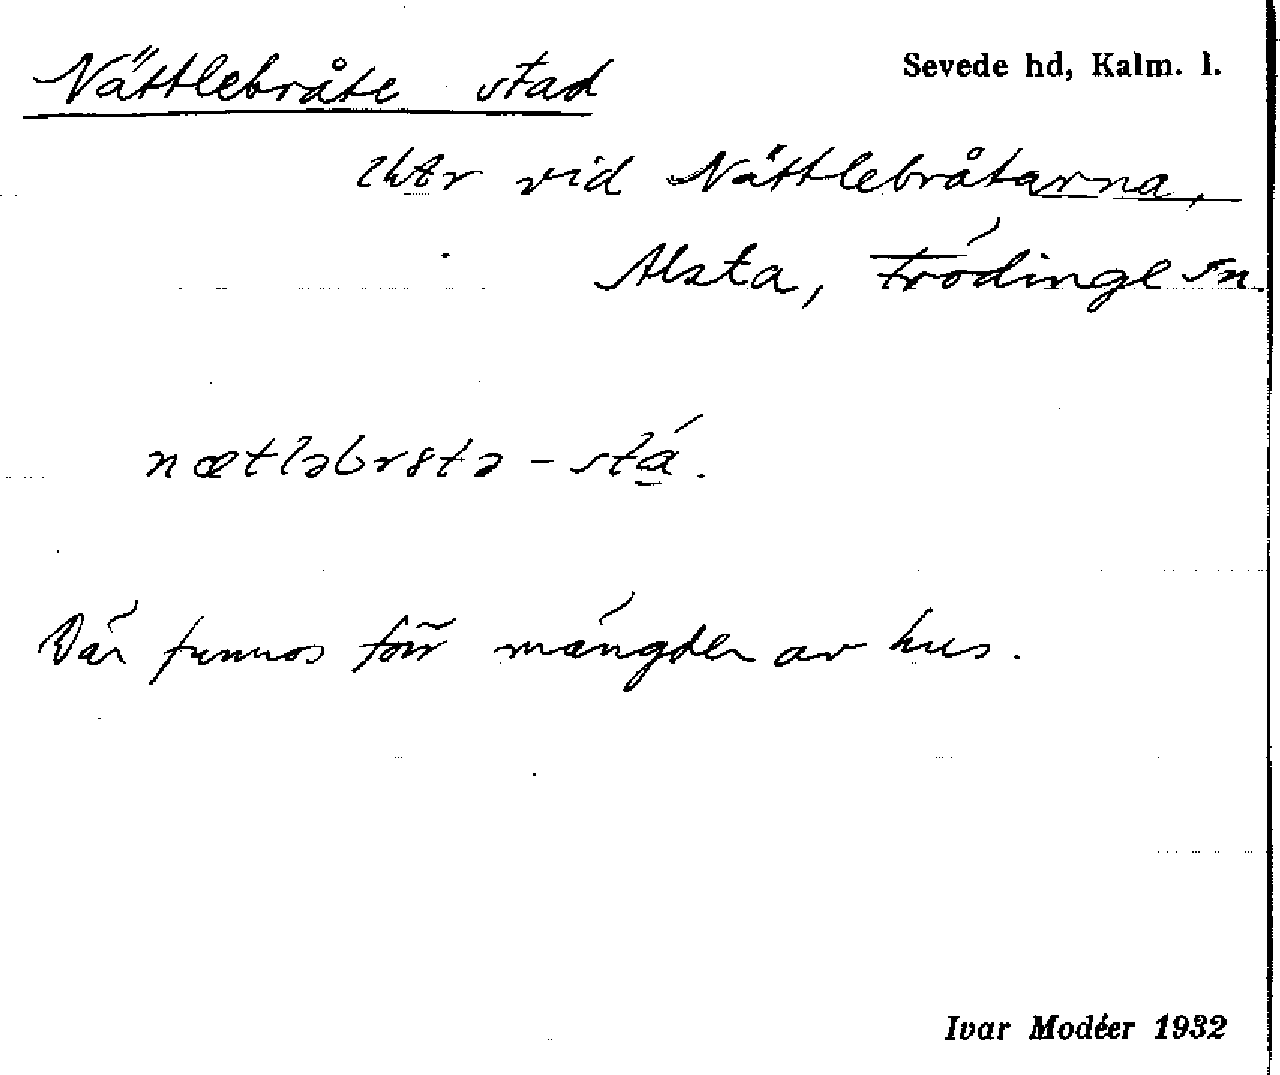 Nättlebråte stad
Sevede hd, Kalm. l.
vid Nättlebråtarna,
Alsta, Frödinge sn.
nætləbr8tə-stá.
Där funnos förr mängder av hus.
Ivar Modéer 1932